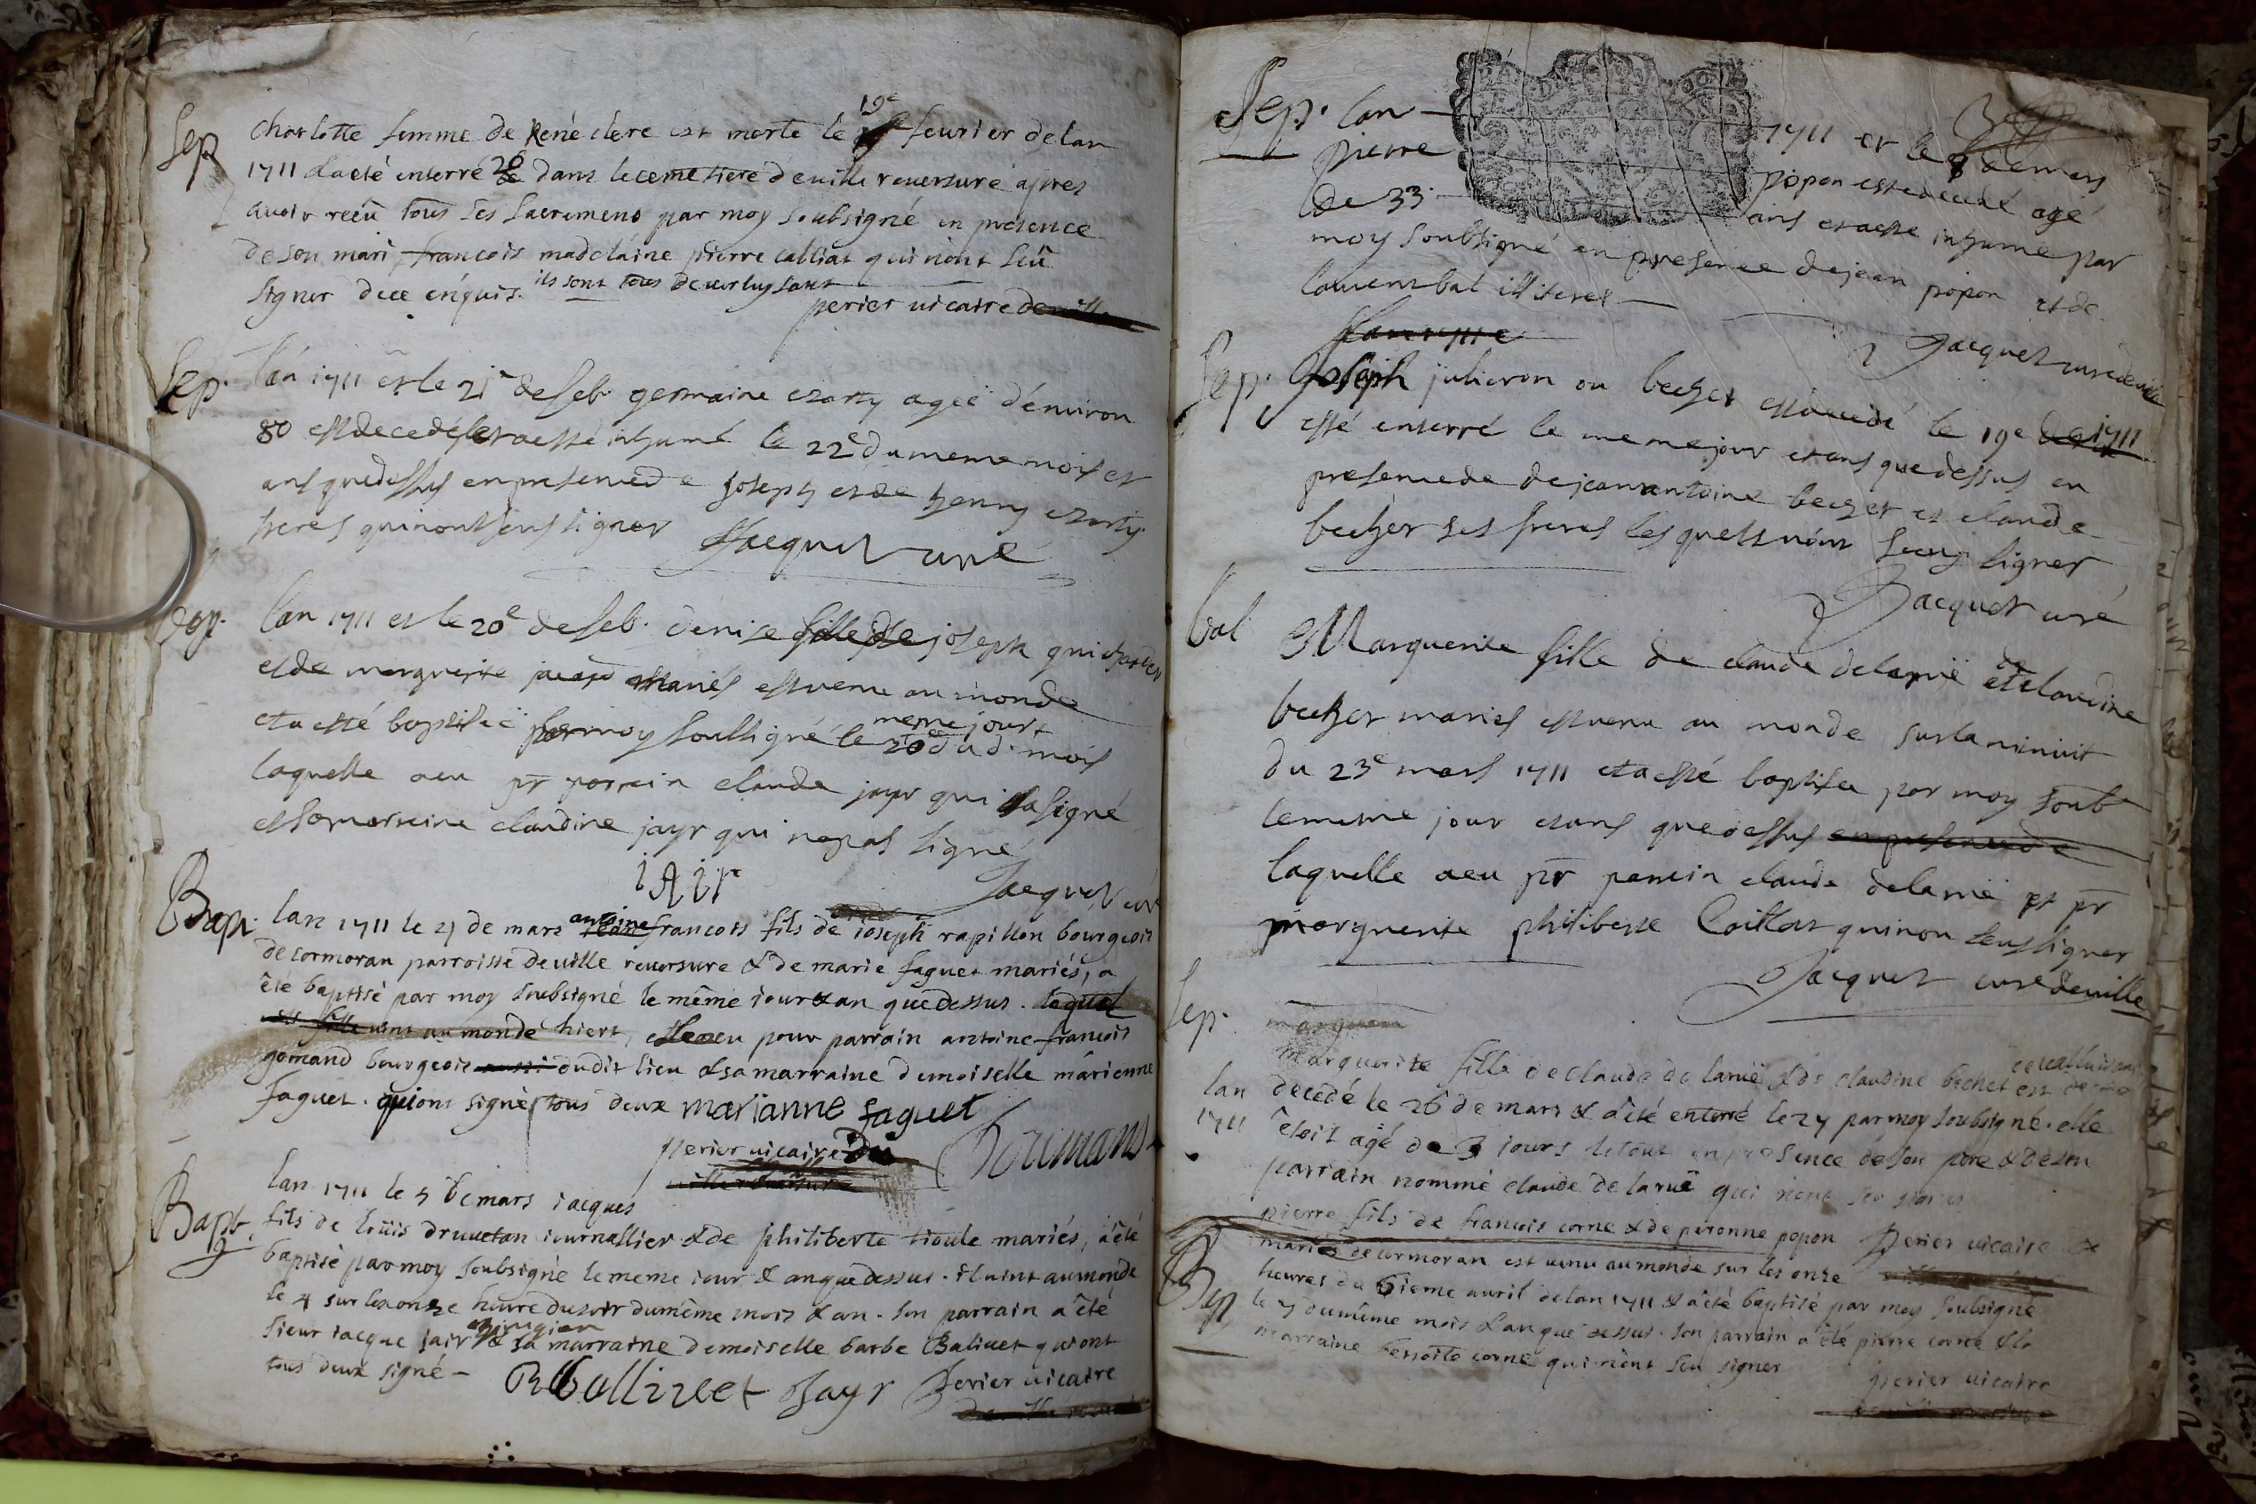 Sep
Charlotte femme de René clerc est morte le 19e feurier de lan
1711 & a eté enterré 20 dans le cemetiere de uille reuersure apres
auoir recû tous ses sacremens par moy soubsigné en presence
de son mari, francois madelaine pierre calliat qui n'ont sceû
signer de ce enquis. ils sont tous de
perier uicaire
Sep.
lan 1711 et le 21e de feb. germaine agée denuiron
80 est decedé et a esté inhumé le 22e du meme mois et
ans que dessus en presence de joseph et de henry
freres qui n'ont sceus signer Jacquet curé
Bap.
lan 1711 et le 20e de feb. denise fille de joseph
et de marguerite mariés est venue au monde
et a esté baptisée par moy soubsigné le meme jour 20e dud. mois
laquelle a eu pr parrain claude jayr qui a signé
et sa marraine claudine jayr qui n'a pas signé
iAir
Jacquet curé
Bap.
lan 1711 le 21 de mars antoine francois fils de ioseph rapillon bourgeois
de cormoran parroisse de uille reuersure & de marie faguet mariés, a
été baptisé par moy soubsigné le même iour & an que dessus. lequel
uint au monde hiert, a eu pour parrain antoine francois
gomand bourgeois aussi dudit lieu & sa marraine demoiselle mârienne
faguet. qui ont signé tous deux marianne faguet
perier uicaire
Bapt.
lan 1711 le 5 de mars iacques
fils de loüis druuetan iournallier & de philiberte tioule mariés, a été
baptisé par moy soubsigné le meme iour & an que dessus. il uint au monde
le 4 sur les onze heure du soir du même mois & an. son parrain a été
sieur iacque jair chirugien & sa marraine demoiselle barbe Baliuet qui ont
tous deux signé – B Ballivet Jayr perier uicaire
Sep. lan 1711 et le 8 de mars
pierre popon est decedé agé
de 33 ans et a esté inhumé par
moy soubsigné en presence de jean popon et de
laurens bal illiteres
Jacquet curé de uille
Sep.
Joseph julieron ou becher est decedé le 19e 1711
esté enterré le meme jour et ans que dessus en
presence de de jean antoine becher et claude
becher ses freres lesquels n'ont sceu signer
Jacquet curé
bat
Marguerite fille de claude delarue et de claudine
becher mariés est venu au monde sur la minuit
du 23e mars 1711 et a esté baptisée par moy soub
le meme jour et ans que dessus en presence de
laquelle a eu pr parrain claude delarue et pr
marguerite philiberte Caillat qui n'on sceus signer
Jacquet curé de uille
Sep.
marguerite
lan
1711
marguerite fille de claude de laruë & de claudine bechet est
decedé le 26 de mars & a été enterré le 27 par moy soubsigné. elle
étoit agé de 3 iours le tout en presence de son pere & de son
parrain nommé claude de laruë qui n'ont sceu signer
perier uicaire
Bap
pierre fils de francois corne & de peronne popon
mariés de cormoran est uenu au monde sur les onze
heures du 6ieme auril de lan 1711 & a été baptisé par moy soubsigné
le 7 du même mois & an que dessus. son parrain a été pierre corne & la
marraine benoite corne qui n'ont sceu signer
perier uicaire